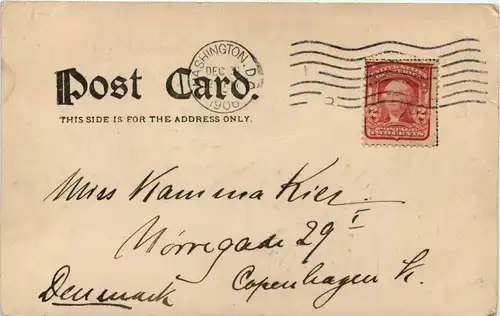 Post Card.
THIS SIDE IS FOR THE ADDRESS ONLY.
WASHINGTON, D.
DEC
1906
2 2
POSTAGE
TWO CENTS
Miss Kamma Kier
Nörregade 29 I
Copenhagen K.
Denmark